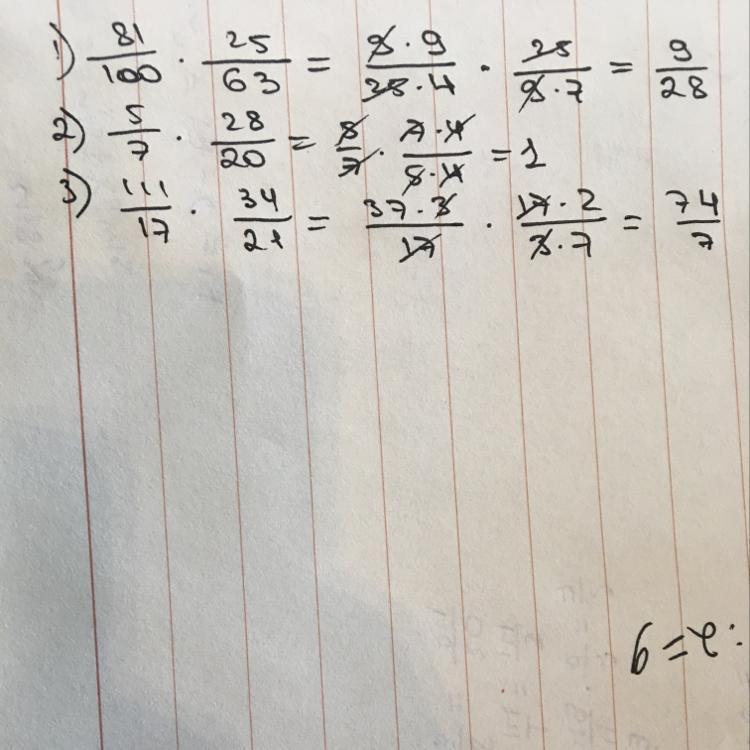 1) 81/100 · 25/63 = 9·9/25·4 · 25/9·7 = 9/28
2) 5/7 · 28/20 = 5/7 · 7·4/5·4 = 1
3) 111/17 · 34/21 = 37·3/17 · 17·2/3·7 = 74/7